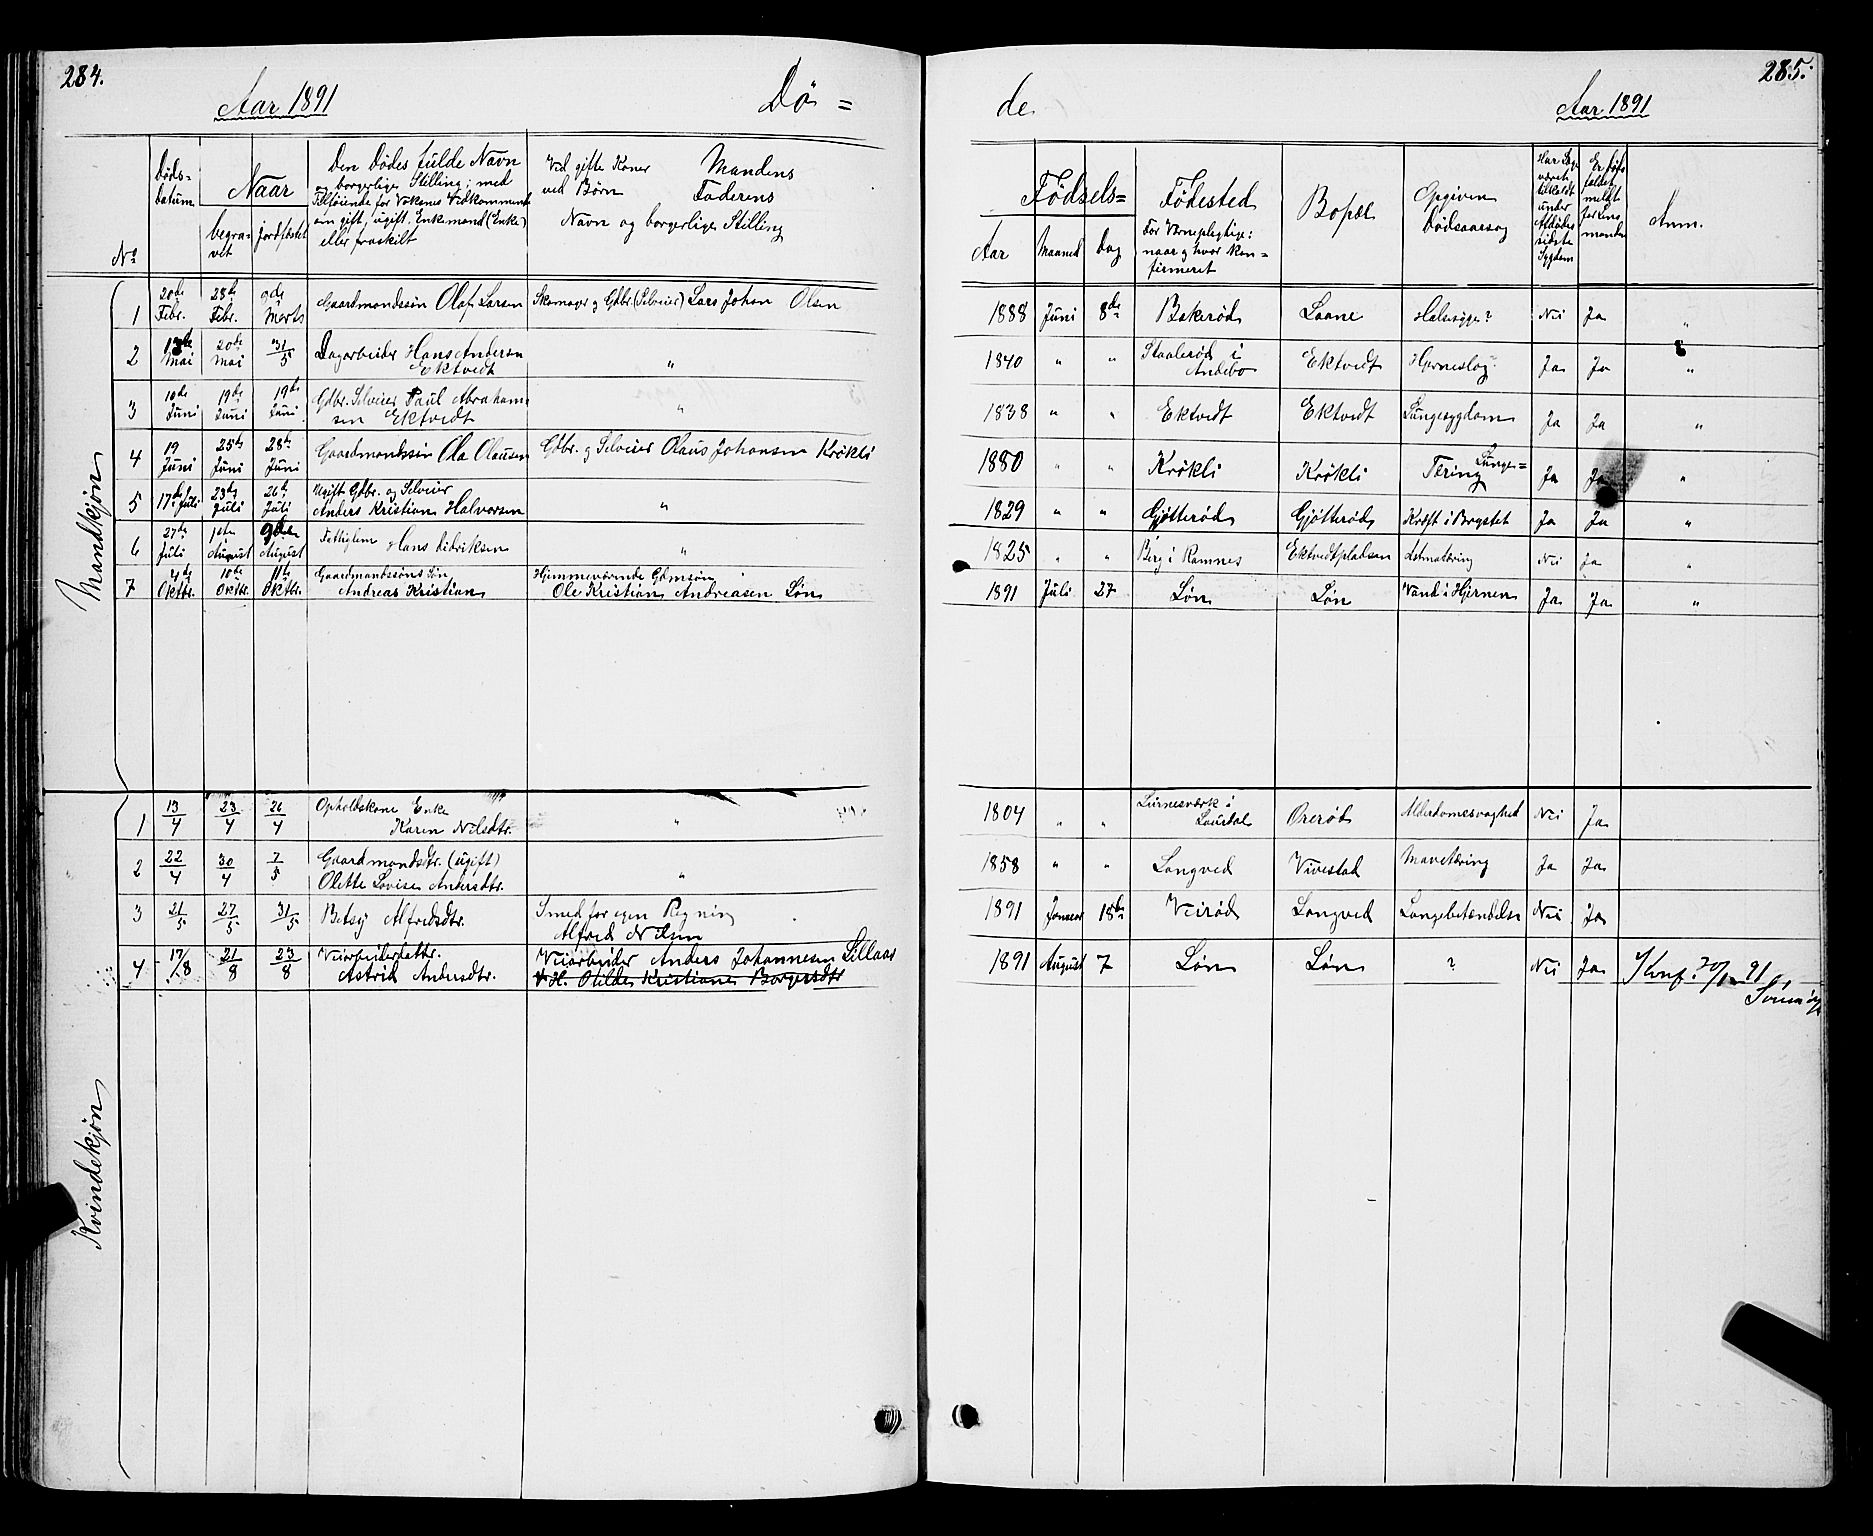 284.
Aar 1891
Dø =
de
Aar 1891
285.
No
Døds-
datum
Naar
begra-
vet
jordfæstet
Den Dødes fulde Navn
og borgerlige Stilling; med
Tilføiende for Voksnes Vedkommende
om gift, ugift, Enkemand (Enke)
eller fraskilt
Ved gifte Koner Mandens
ved Børn Faderens
Navn og borgerlige Stilling
Fødsels=
Aar
Maaned
Dag
Fødested
For Værnepligtige:
naar og hvor kon=
firmeret
Bopæl
Opgiven
Dødsaarsag
Har Læge
været
tilkaldt
under
Afdødes
sidste
Sygdom
Er Døds
faldet
meldt
for Lens
manden
Anm.
Mandkjøn
1 20de Febr. 28de Febr. 9de Marts Gaardmandssøn Olaf Larsen Skomager og Gdbr. (Selveier) Lars Johan Olsen 1888 Juni 8de Bakerød Laane Halssyge? Nei Ja "
2 13de Mai 20de Mai 31/5 Dagarbeider Hans Andersen Ektvedt " 1840 " " Staalerød i Andebo Ektvedt Hjerneslag? Ja Ja "
3 10de Juni 19de Juni 19de Juni Gdbr. Selveier Paul Abraham- sen Ektvedt " 1838 " " Ektvedt Ektvedt Lungesygdom Ja Ja "
4 19 Juni 25de Juni 28de Juni Gaardmandssøn Ola Olausen Gdbr. og Selveier Olaus Johansen Krøkli 1880 " " Krøkli Krøkli Lunge= Tæring Ja Ja "
5 17de Juli 23de Juli 26de Juli Ugift Gdbr. og Selveier Anders Kristian Halvorsen " 1829 " " Gjøtterød Gjøtterød Kræft i Brystet Ja Ja "
6 27de Juli 1ste August 9de August Fattiglem Hans Didriksen " 1825 " " Berg i Ramnes Ektvedtpladsen Nei Ja "
7 4de Oktbr. 10de Oktbr. 11te Oktbr. Gaardmandssøns Søn Andreas Kristian Hjemmeværende Gdmsøn Ole Kristian Andreasen Løn 1891 Juli 27 Løn Løn Vand i Hjernen Ja Ja "
Kvindekjøn
1 13/4 23/4 26/4 Opholdskone Enke Karen Nilsdtr. " 1804 " " Laurdal Orerød Alderdomssvaghed Nei Ja
2 22/4 30/4 7/5 Gaardmandsdtr. (ugift) Olette Lovise Andersdtr. " 1858 " " Langved Vivestad Mavetæring Ja Ja
3 21/5 27/5 31/5 Betsy Alfredsdtr. Smed for egen Regning Alfred Nilsen 1891 Januar 18de Veirød Langved Lungebetændelse Nei Ja
4 17/8 21/8 23/8 Veiarbeiderdatter. Astrid Andersdtr. Veiarbeider Anders Johannesen Lillaas & H. Otilde Kristiane Borgersdtr 1891 August 7 Løn Løn ? Nei Ja